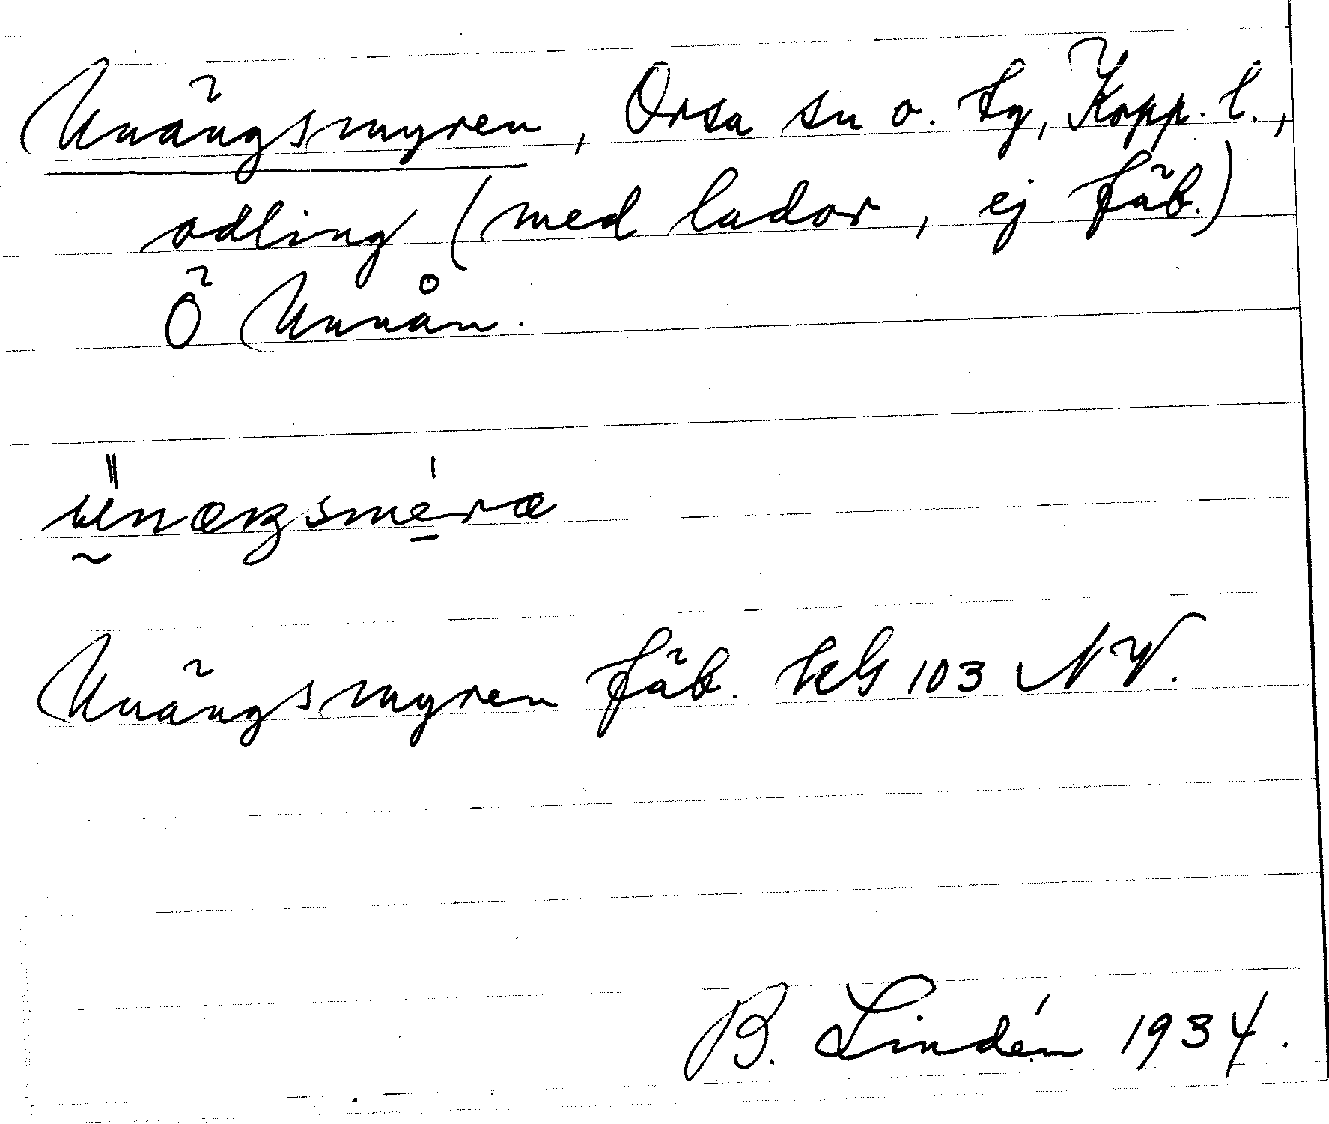 Unängsmyren, Orsa sn o. tg, Kopp. l.,
odling (med lador, ej fäb.)
Ö Unnån.
Unängsmyren fäb. kbl 103 NV.
B. Lindén 1934.